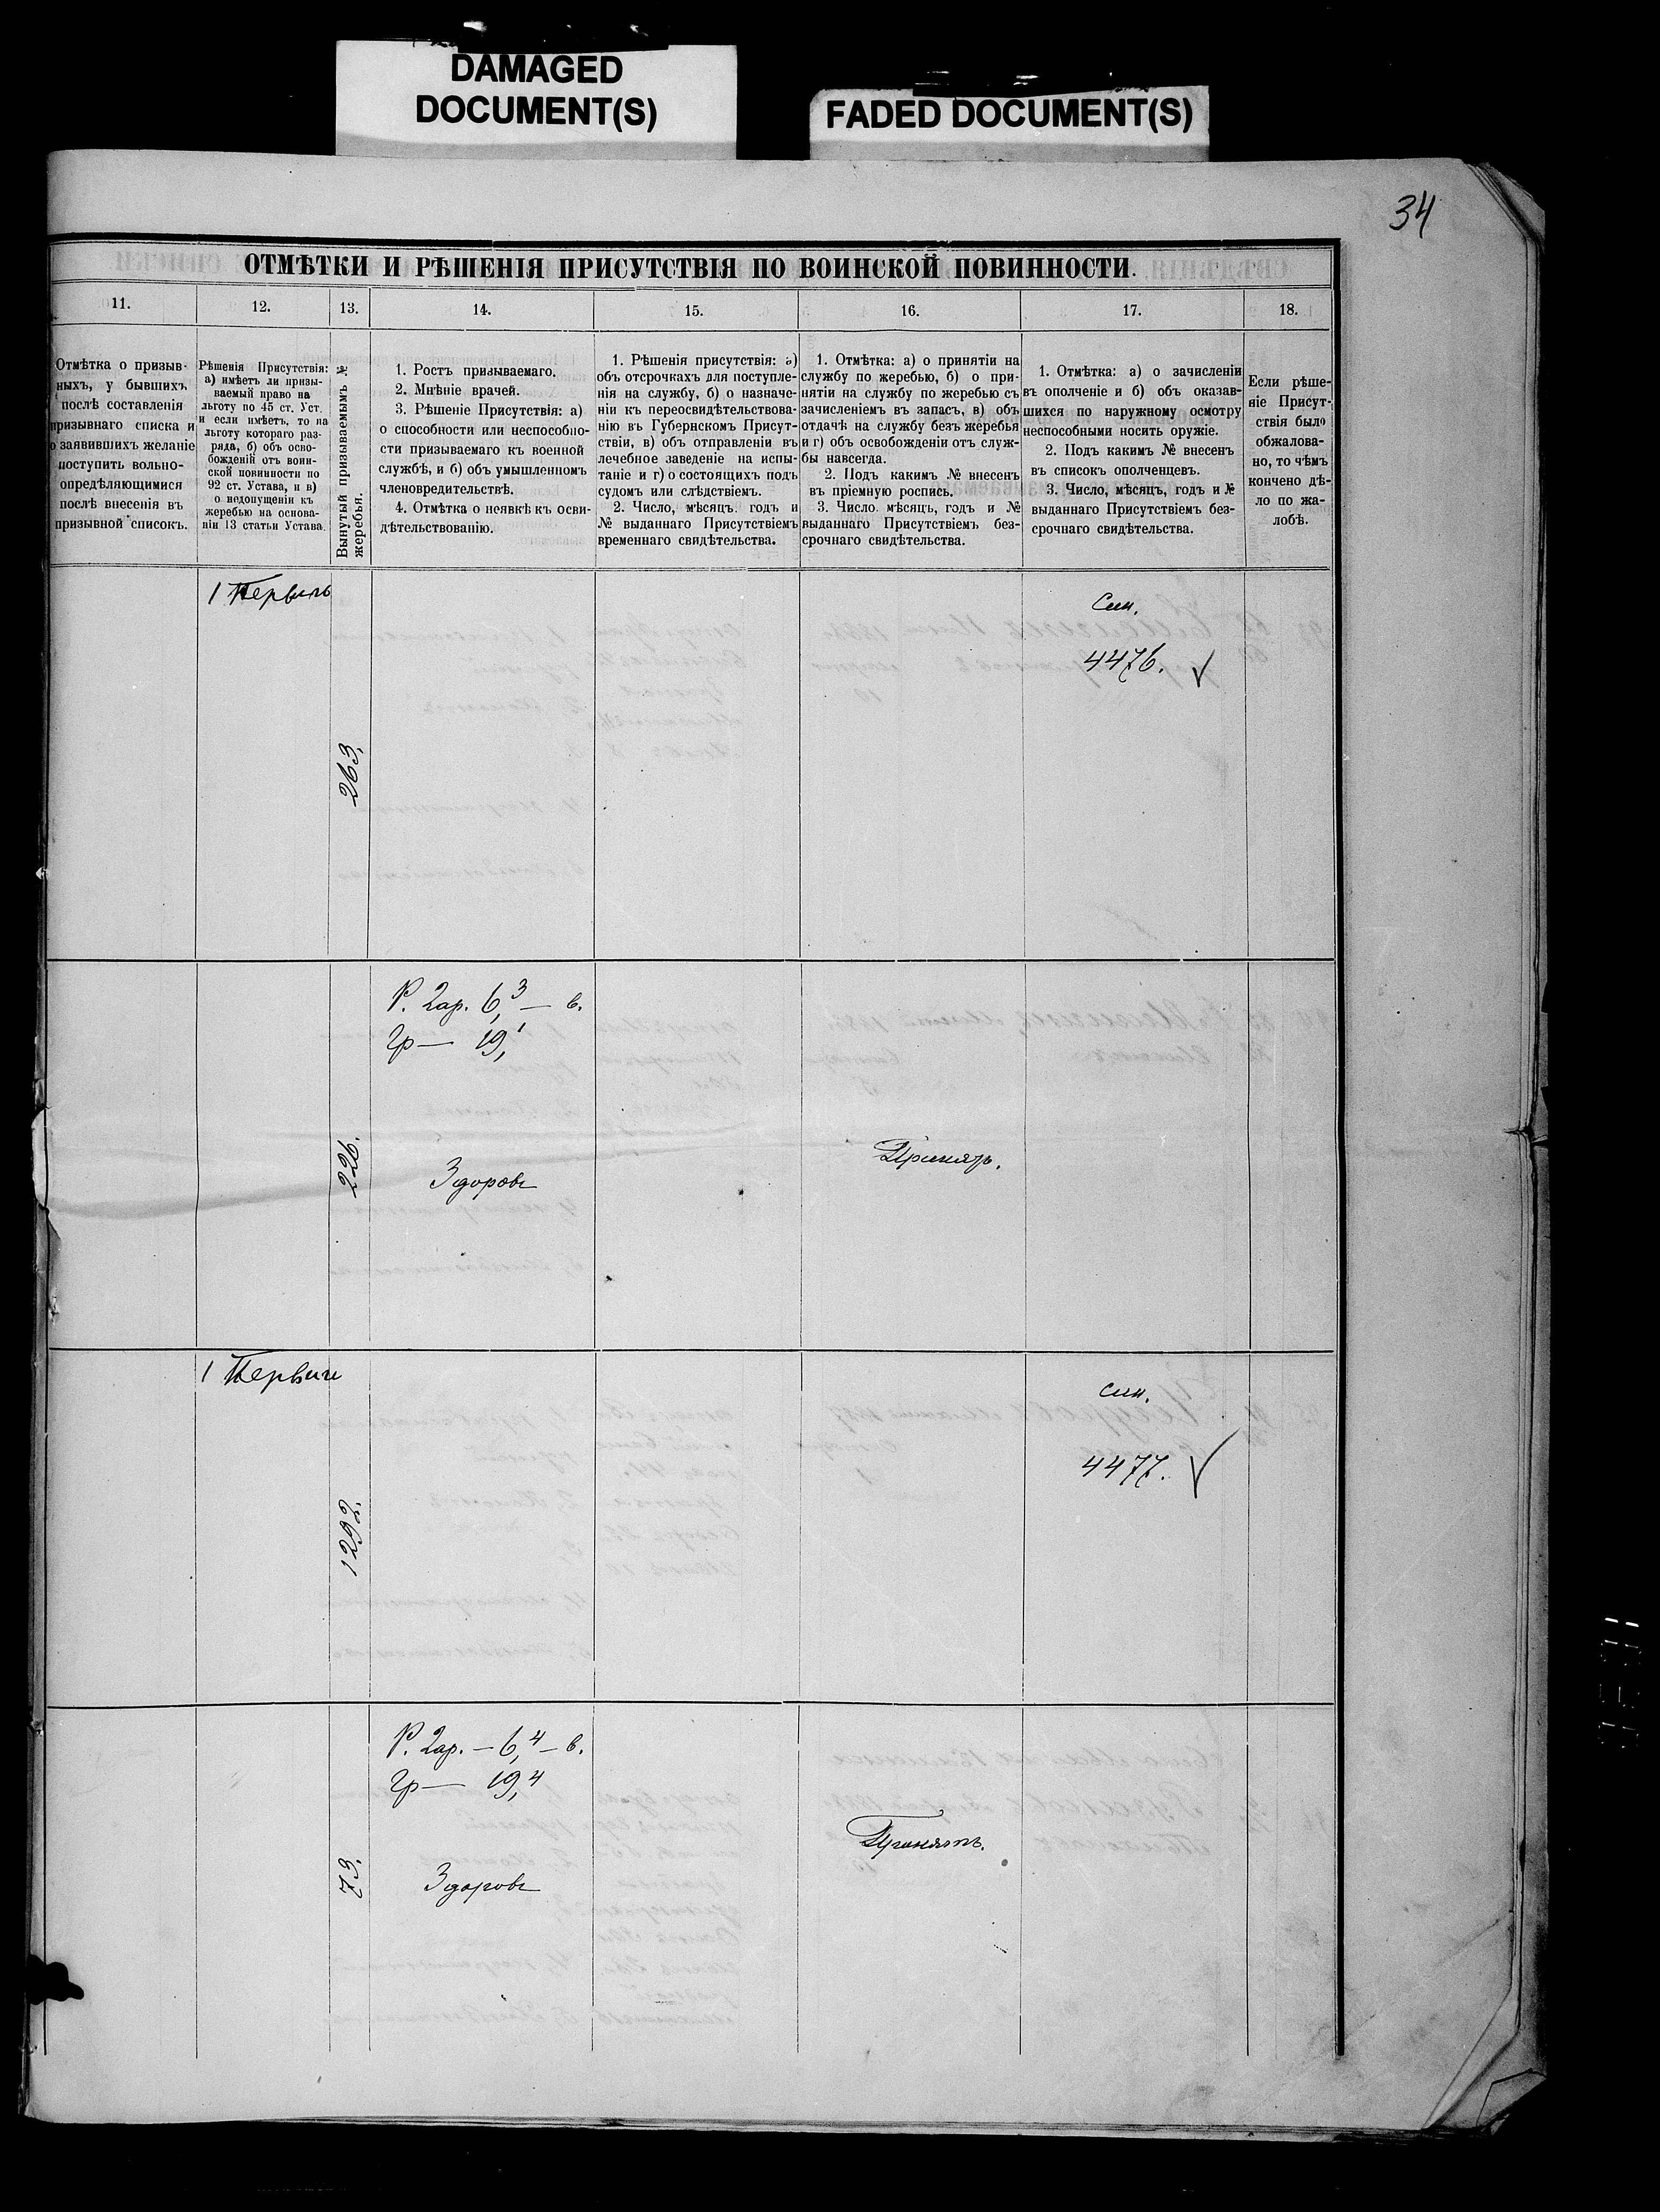 DAMAGED
DOCUMENT(S)
FADED DOCUMENT(S)
34
ОТМѢТКИ И РѢШЕНІЯ ПРИСУТСТВІЯ ПО ВОИНСКОЙ ПОВИННОСТИ.
11.
12.
13.
14.
15.
16.
17.
18.
Отмѣтка о призыв-
ныхъ, у бывшихъ
послѣ составленія
призывнаго списка и
о заявившихъ желаніе
поступить вольно-
опредѣляющимися
послѣ внесенія въ
призывной списокъ.
Рѣшенія Присутствія:
а) имѣетъ ли призы-
ваемый право на
льготу по 45 ст. Уст.
и если имѣетъ, то на
льготу котораго раз-
ряда, б) объ осво-
божденій отъ воин-
ской повинности по
92 ст. Устава, и в)
о недопущеніи къ
жеребью на основа-
ніи 13 статьи Устава.
Вынутый призываемымъ №
жеребья.
1. Ростъ призываемаго.
2. Мнѣніе врачей.
3. Рѣшеніе Присутствія: а)
о способности или неспособно-
сти призываемаго къ военной
службѣ, и б) объ умышленномъ
членовредительствѣ.
4. Отмѣтка о неявкѣ къ осви-
дѣтельствованію.
1. Рѣшенія присутствія: а)
объ отсрочкахъ для поступле-
нія на службу, б) о назначе-
ніи къ переосвидѣтельствова-
нію въ Губернскомъ Присут-
ствіи, в) объ отправленіи въ
лечебное заведеніе на испы-
таніе и г) о состоящихъ подъ
судомъ или слѣдствіемъ.
2. Число, мѣсяцъ. годъ и
№ выданнаго Присутствіемъ
временнаго свидѣтельства.
1. Отмѣтка: а) о принятіи на
службу по жеребью, б) о при-
нятіи на службу по жеребью съ
зачисленіемъ въ запасъ, в) объ
отдачѣ на службу безъ жеребья
и г) объ освобожденіи отъ служ-
бы навсегда.
2. Подъ какимъ № внесенъ
въ пріемную роспись.
3. Число. мѣсяцъ, годъ и №
выданнаго Присутствіемъ без-
срочнаго свидѣтельства.
1. Отмѣтка: а) о зачисленіи
въ ополченіе и б) объ оказав-
шихся по наружному осмотру
неспособными носить оружіе.
2. Подъ какимъ № внесенъ
въ списокъ ополченцевъ.
3. Число, мѣсяцъ, годъ и №
выданнаго Присутствіемъ без-
срочнаго свидѣтельства.
Если рѣше-
ніе Присут-
ствія было
обжалова-
но, то чѣмъ
кончено дѣ-
ло по жа-
лобѣ.
1
263,
4476.
Р. 2ар. 6,3 — в.
Гр — 19,1
226.
Здоровъ
Принятъ.
1
1292.
4477.
Р. 2ар. — 6,4 — в.
Гр — 19,4
73.
Здоровъ
Принятъ.